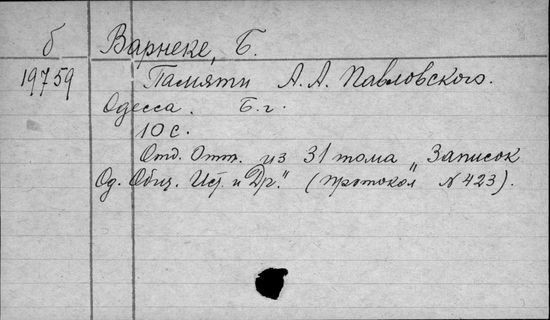 б Варнеке, Б.
19759 Памяти А.А. Павловского.
Одесса. Б.г.
10 с.
Отд. Отт. из 31 тома „Записок
Од. Общ. Ист. и Др." (протокол N 423).